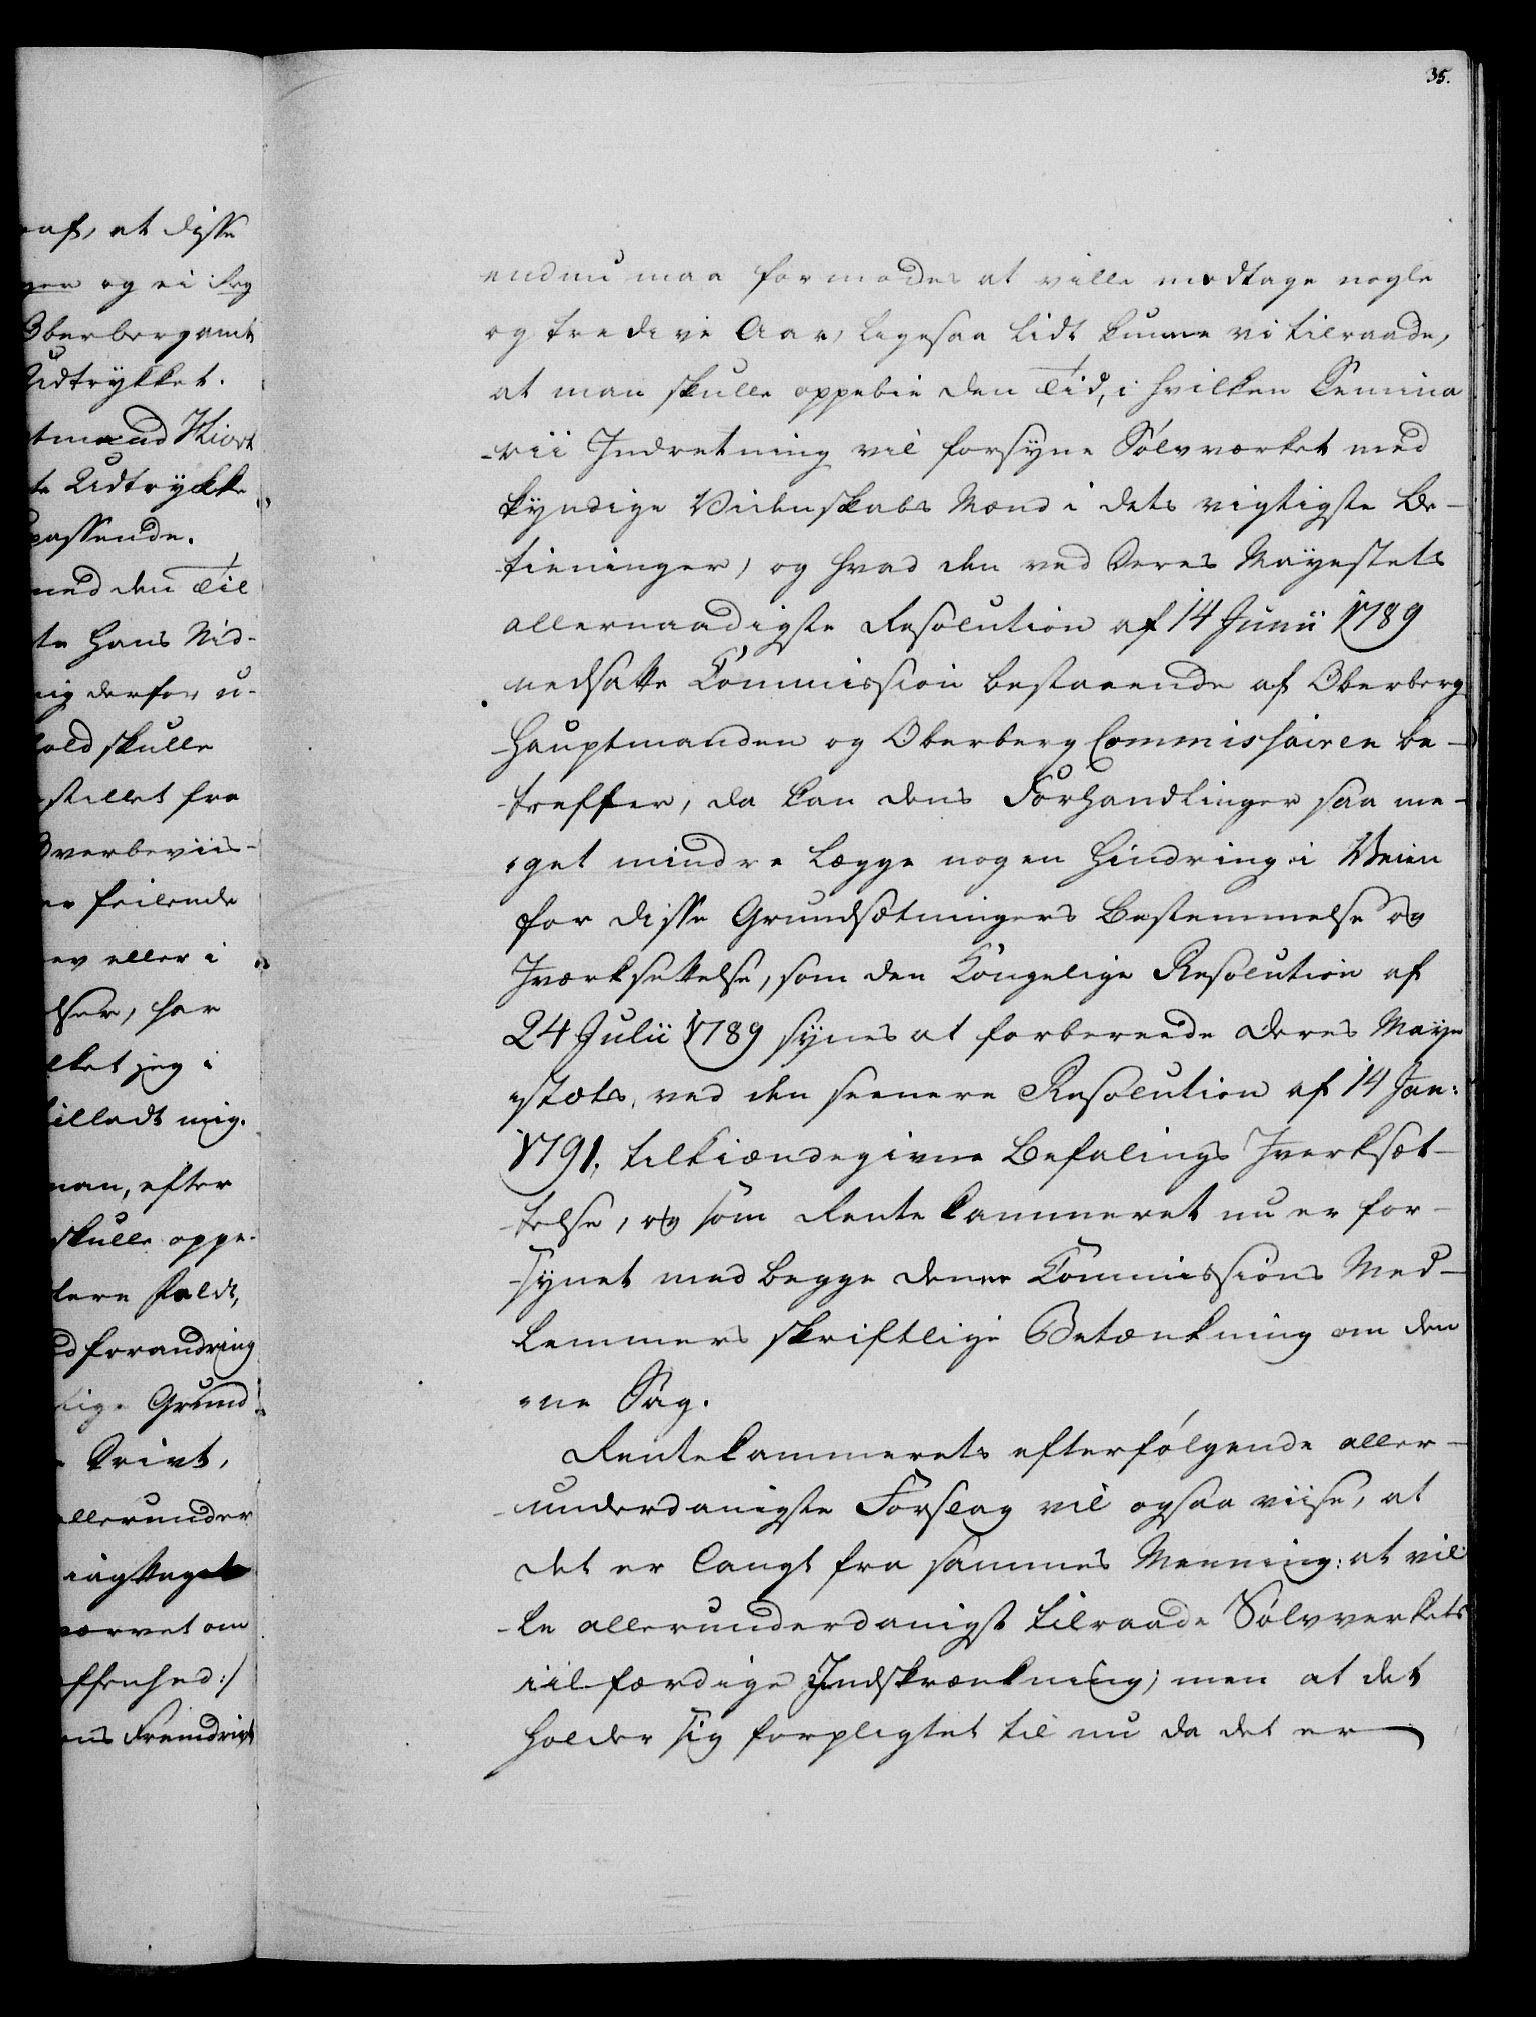 35.
af, at disse
og ei
Oberbergamt
Udtrykket.
tmand Hiort
te Udtrykke
passende.
med den Til
te Hans Nid-
ig derfor u-
hold skulle
stillet fra
Overbeviis-
feilende
ev eller i
lser, har
lket jeg i
tilladt mig.
man, efter
skulle oppe-
tere
d forandring
lige Grund
Drivt,
allerunder
iagttaget
om
ffenhed:/
ens Fremdrivt
endnu maa formodes at ville medtage nogle
og tredive Aar, ligesaa lidt kunne vi tilraade,
at man skulle oppebie den Tid, i hvilken Semina
-rii Indretning vil forsyne Sølvværket med
kyndige Videnskabs Mænd i dets vigtigste Be-
-tieninger, og hvad den ved Deres Mayestets
allernaadigste Resolution af 14 Junii 1789
nedsatte Commission bestaaende af Oberberg
-Hauptmanden og Oberberg Commissairen be-
-treffer, da kan dens Forhandlinger saa me-
-get mindre lægge nogen Hindring i Veien
for disse Grundsætningers Bestemmelse og
Iværksettelse, som den Kongelige Resolution af
24 Julii 1789 synes at forbereede Deres Maye
-stæts, ved den seenere Resolution af 14 Jan:
1791, tilkiændegivne Befalings Iverksæt-
-telse, og som Rentekammeret nu er for-
-synet med begge denne Commissions Med-
-lemmers skriftlige Betænkning om den
-ne Sag.
Rentekammerets efterfølgende aller-
-underdanigste Forslag vil ogsaa viise, at
det er langt fra sammes Meening: at vil
-le allerunderdanigst tilraade Sølvverkets
iilfærdige Indskrænkning; men at det
holder sig forpligtet til nu da det er